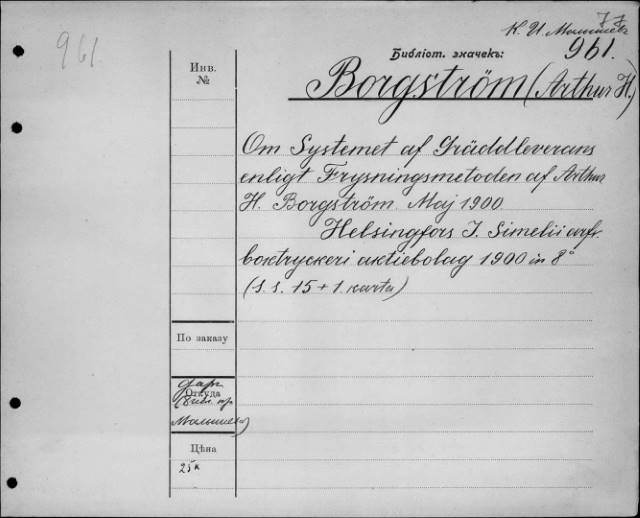 К. И. Малышев
961
Библіот. значекъ:
961.
Инв.
№
Borgström (Arthur H.)
Om Systemet af Gräddleverans
enligt Frysningsmetoden af Arthur
H. Borgström. Maj 1900
Helsingfors J. Simelii arfv.
boktryckeri aktiebolag 1900 in 8°
(s. s. 15 + 1. karta)
По заказу
Откуда
даръ
Малышева)
Цѣна
25к